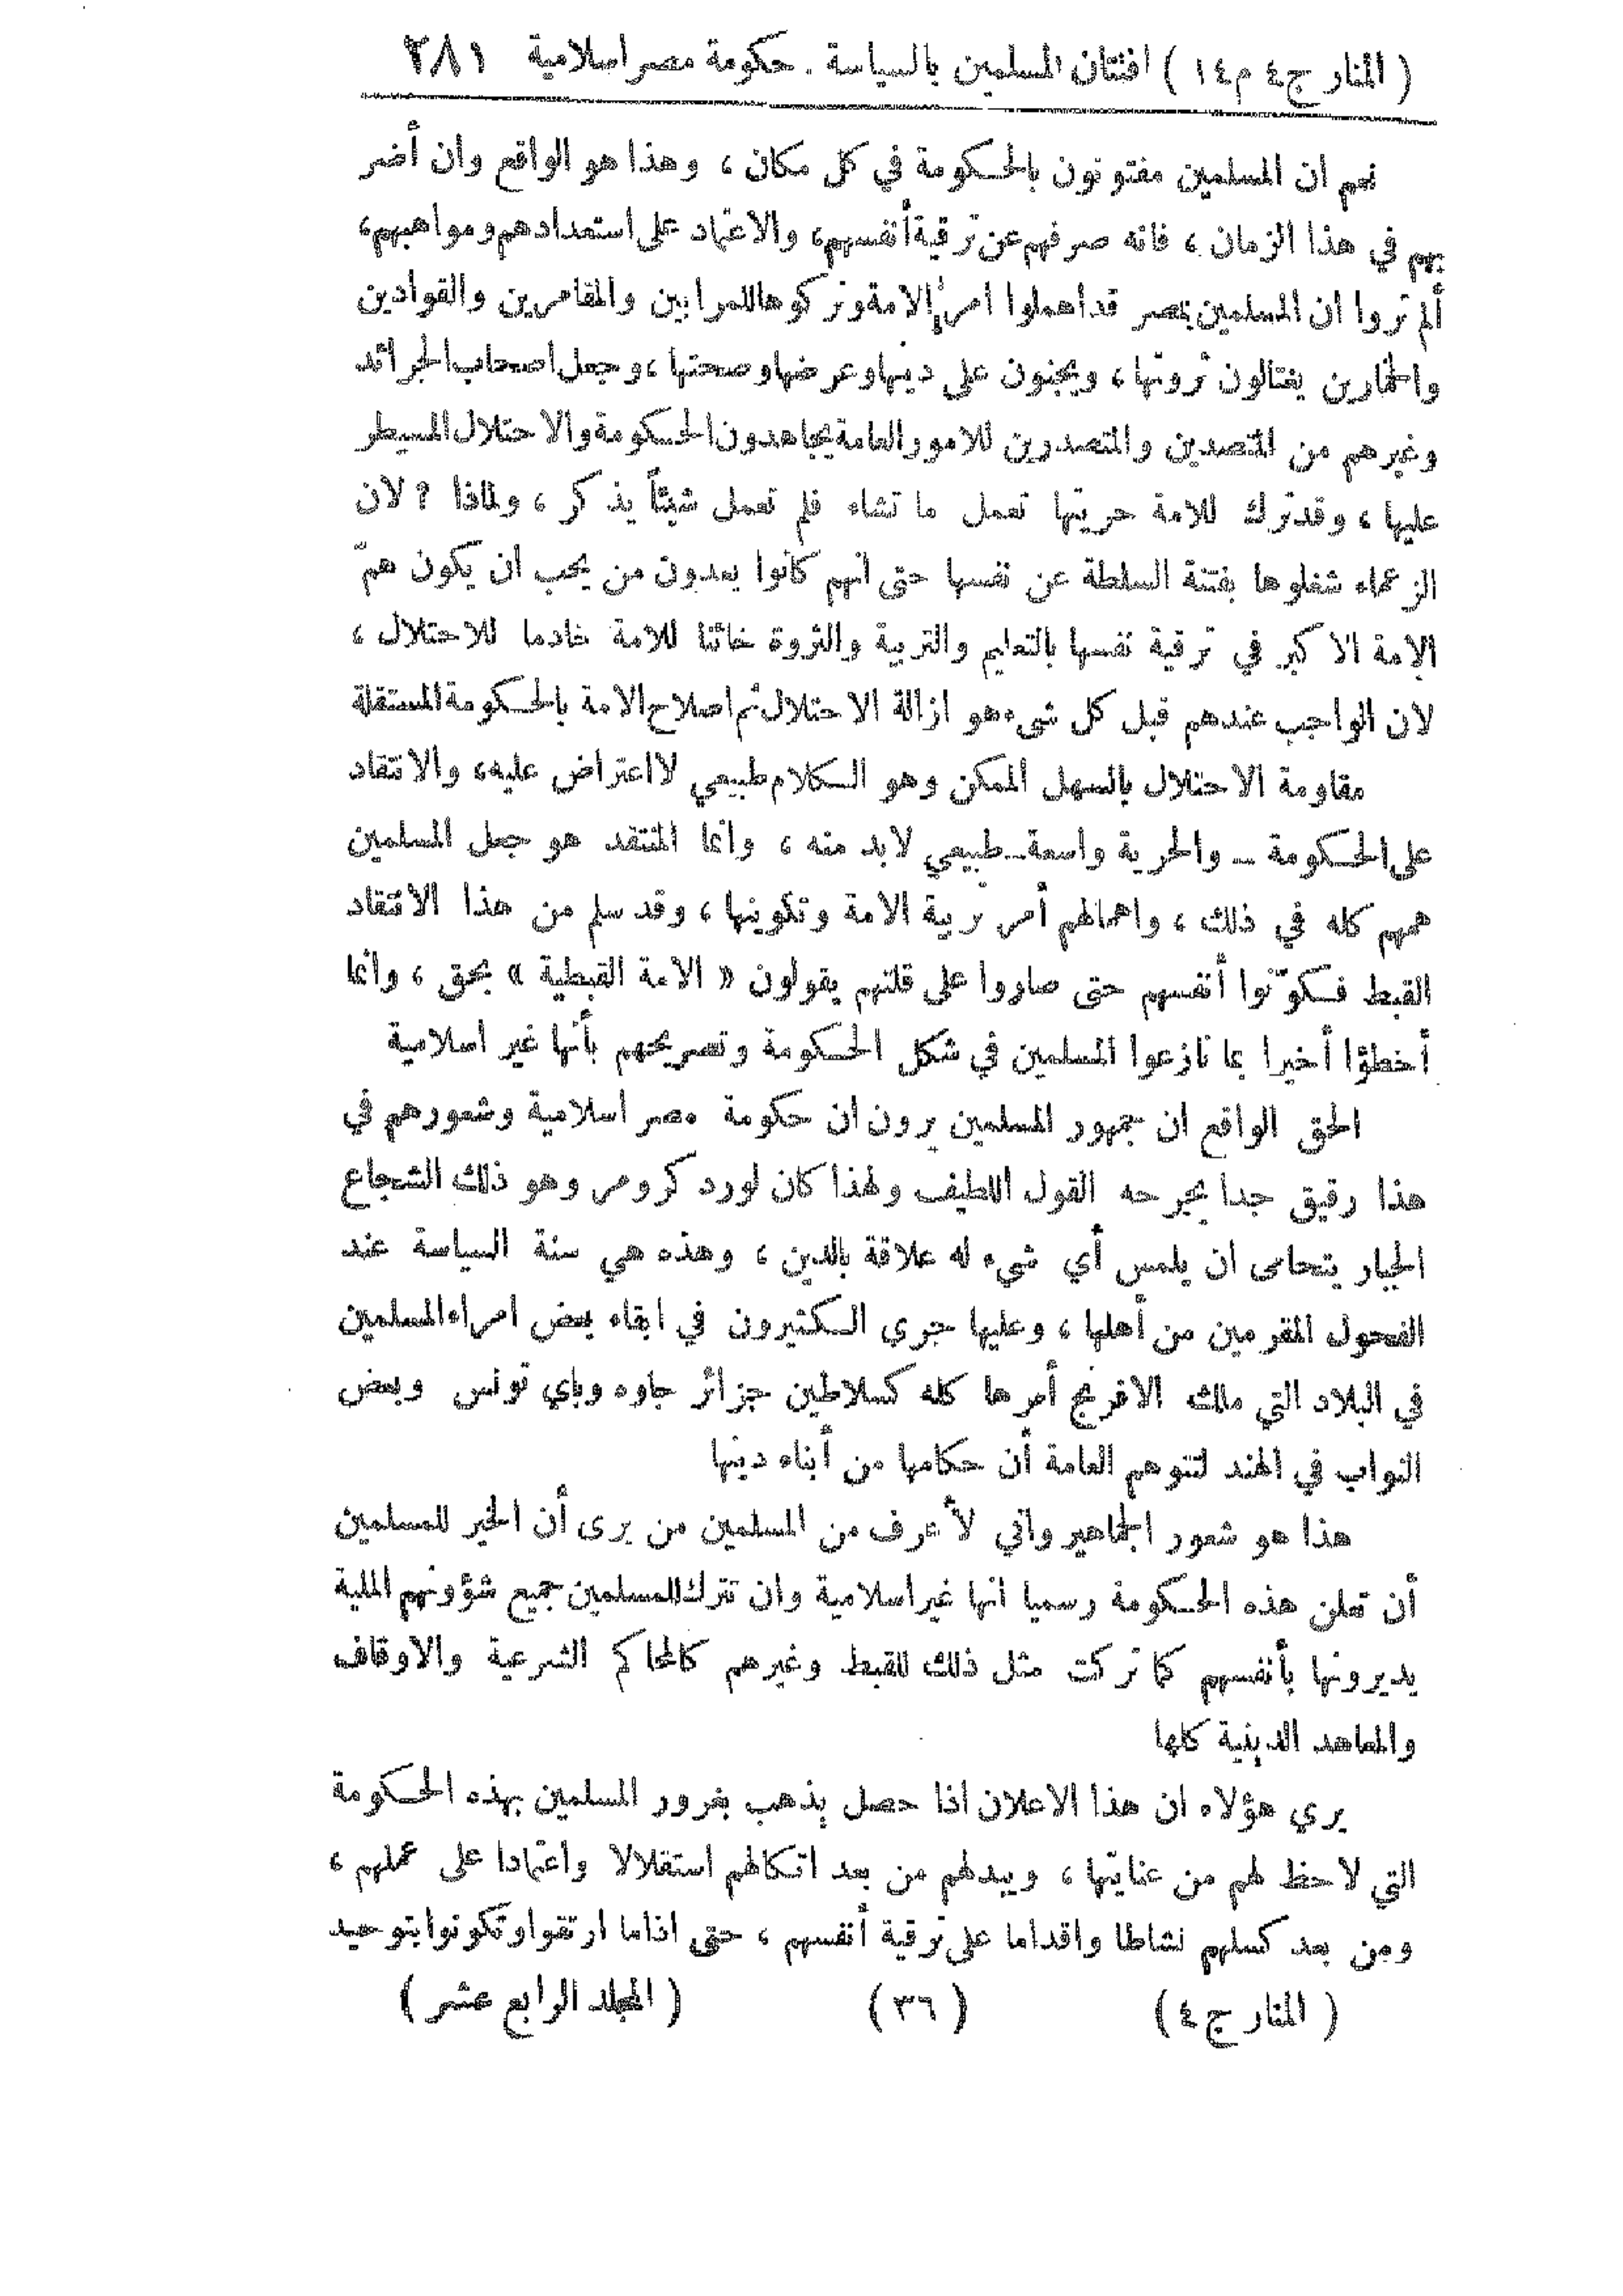 ( المنار ج٤ م١٤ ) افتتان المسلمين بالسياسة . حكومة مصر اسلامية ٢٨١
نعم ان المسلمين مفتونون بالحكومة في كل مكان ، وهذا هو الواقع وان أضر
بهم في هذا الزمان ، فانه صرفهم عن ترقية أنفسهم ، والاعتماد على استعدادهم ومواهبهم ،
ألم تروا ان المسلمين بمصر قد اهملوا امر الامة وتركوها للمرابين والمقامرين والقوادين
والخمارين يغتالون ثروتها ، ويجنون على دينها وعرضها وصحتها ، وجعل اصحاب الجرائد
وغيرهم من المتصدين والمتصدرين للامور العامة يجاهدون الحكومة والاحتلال المسيطر
عليها ، وقد ترك للامة حريتها تعمل ما تشاء فلم تعمل شيئاً يذكر ، ولماذا ؟ لان
الزعماء شغلوها بفتنة السلطة عن نفسها حتى انهم كانوا يعدون من يحب ان يكون همّ
الامة الاكبر في ترقية نفسها بالتعليم والتربية والثروة خائنا للامة خادما للاحتلال ،
لان الواجب عندهم قبل كل شيء هو ازالة الاحتلال ثم اصلاح الامة بالحكومة المستقلة
مقاومة الاحتلال بالسهل الممكن وهو الكلام طبيعي لا اعتراض عليه ، والانتقاد
على الحكومة – والحرية واسعة – طبيعي لابد منه ، وانما المنتقد هو جعل المسلمين
همهم كله في ذلك ، واهمالهم أمر تربية الامة وتكوينها ، وقد سلم من هذا الانتقاد
القبط فكوّنوا أنفسهم حتى صاروا على قلتهم يقولون « الامة القبطية » بحق ، وانما
أخطؤا أخيرا بما نازعوا المسلمين في شكل الحكومة وتصريحهم بأنها غير اسلامية
الحق الواقع ان جمهور المسلمين يرون ان حكومة مصر اسلامية وشعورهم في
هذا رقيق جدا يجرحه القول اللطيف ولهذا كان لورد كرومر وهو ذلك الشجاع
الجبار يتحامى ان يلمس أي شيء له علاقة بالدين ، وهذه هي سنة السياسة عند
الفحول المقرمين من أهلها ، وعليها جري الكثيرون في ابقاء بعض امراء المسلمين
في البلاد التي ملك الافرنج أمرها كله كسلاطين جزائر جاوه وباي تونس وبعض
النواب في الهند لتتوهم العامة أن حكامها من أبناء دينها
هذا هو شعور الجماهير واني لأعرف من المسلمين من يرى أن الخير للمسلمين
أن تعلن هذه الحكومة رسميا انها غير اسلامية وان تترك للمسلمين جميع شؤونهم الملية
يديرونها بأنفسهم كما تركت مثل ذلك للقبط وغيرهم كالمحاكم الشرعية والاوقاف
والمعاهد الدينية كلها
يري هؤلاء ان هذا الاعلان اذا حصل يذهب بغرور المسلمين بهذه الحكومة
التي لا حظ لهم من عنايتها ، ويبدلهم من بعد اتكالهم استقلالا واعتمادا على عملهم ،
ومن بعد كسلهم نشاطا واقداما على ترقية أنفسهم ، حتى اذا ما ارتقوا وتكونوا بتوحيد
( المنار ج ٤ ) ( ٣٦ ) ( المجلد الرابع عشر )